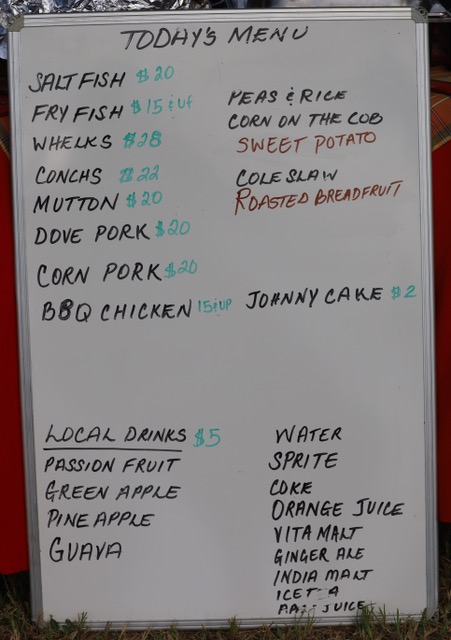 TODAY'S MENU
SALTFISH $20
FRY FISH $15 & UP
WHELKS $28
CONCHS $22
MUTTON $20
DOVE PORK $20
CORN PORK $20
BBQ CHICKEN 15 & UP
PEAS & RICE
CORN ON THE COB
SWEET POTATO
COLESLAW
ROASTED BREADFRUIT
JOHNNY CAKE $2
LOCAL DRINKS $5
PASSION FRUIT
GREEN APPLE
PINEAPPLE
GUAVA
WATER
SPRITE
COKE
ORANGE JUICE
VITA MALT
GINGER ALE
INDIA MALT
JUICE